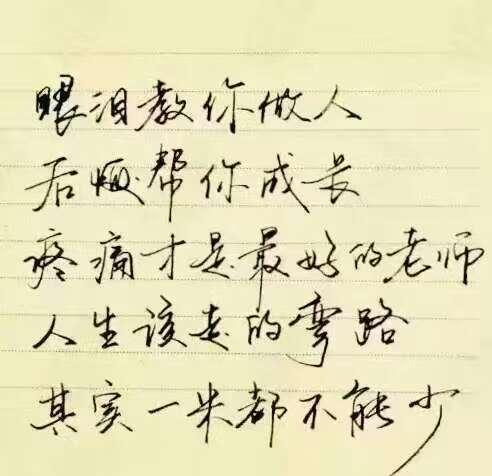 眼泪教你做人
后悔帮你成长
疼痛才是最好的老师
人生该走的弯路
其实一米都不能少